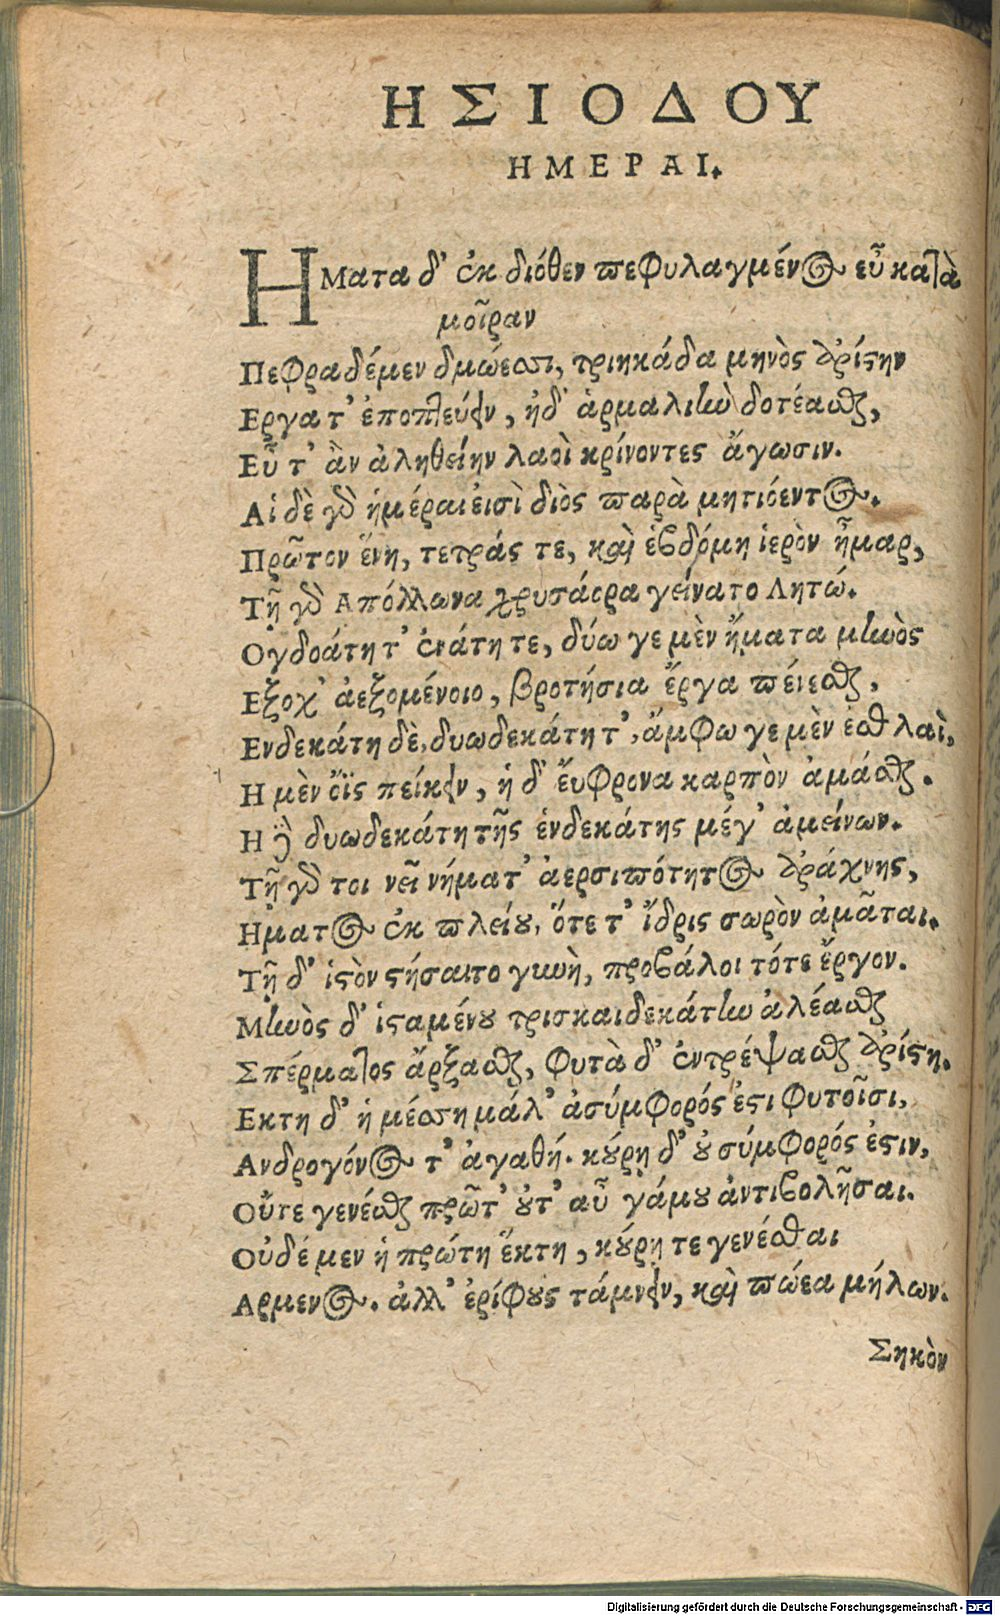 ΗΣΙΟΔΟΥ
ΗΜΕΡΑΙ.
ΗΜατα δ' ἐκ διόθεν πεφυλαγμένος εὖ κατὰ
μοῖραν
Πεφραδέμεν δμώεσσι, τριηκάδα μηνὸς ἀρίστην
Εργα τ' ἐποπτεύειν, ἠδ' ἁρμαλιὴν δοτέασθαι,
Εὖ τ' ἂν ἀληθείην λαοὶ κρίνοντες ἄγωσιν.
Αἱ δὲ γὰρ ἡμέραι εἰσὶ διὸς παρὰ μητιόεντος.
Πρῶτον ἕνη, τετράς τε, καὶ ἑβδόμη ἱερὸν ἦμαρ,
Τῇ γὰρ Απόλλωνα χρυσάορα γείνατο Λητώ.
Ογδοάτη τ' ἐνάτη τε, δύω γε μὲν ἤματα μηνὸς
Εξοχ' ἀεξομένοιο, βροτήσια ἔργα πένεσθαι,
Ενδεκάτη δὲ, δυωδεκάτη τ', ἄμφω γε μὲν ἐσθλαὶ,
Η μὲν ὄϊς πείκειν, ἡ δ' ἔυφρονα καρπὸν ἀμάσθαι.
Η δὲ δυωδεκάτη τῆς ἑνδεκάτης μέγ' ἀμείνων.
Τῇ γὰρ τοι νεῖ νήματ' ἀερσιπότητος ἀράχνης,
Ηματος ἐκ πλείου, ὅτε τ' ἴδρις σωρὸν ἀμᾶται.
Τῇ δ' ἱστὸν στήσαιτο γυνὴ, προβάλοι τότε ἔργον.
Μηνὸς δ' ἱσταμένου τρισκαιδεκάτην ἀλέασθαι
Σπέρματος ἄρξασθαι, φυτὰ δ' ἐντρέψασθαι ἀρίστη.
Εκτη δ' ἡ μέσση μάλ' ἀσύμφορός ἐστι φυτοῖσι,
Ανδρογόνος τ' ἀγαθή. κούρη δ' οὐ σύμφορός ἐστιν,
Οὔτε γενέσθαι πρῶτ' οὐτ' αὖ γάμου ἀντιβολῆσαι.
Οὐδέ μεν ἡ πρώτη ἕκτη, κούρῃ τε γενέσθαι
Αρμενος. ἀλλ' ἐρίφους τάμνειν, καὶ πώεα μήλων.
Σηκὸν
Digitalisierung gefördert durch die Deutsche Forschungsgemeinschaft - DFG